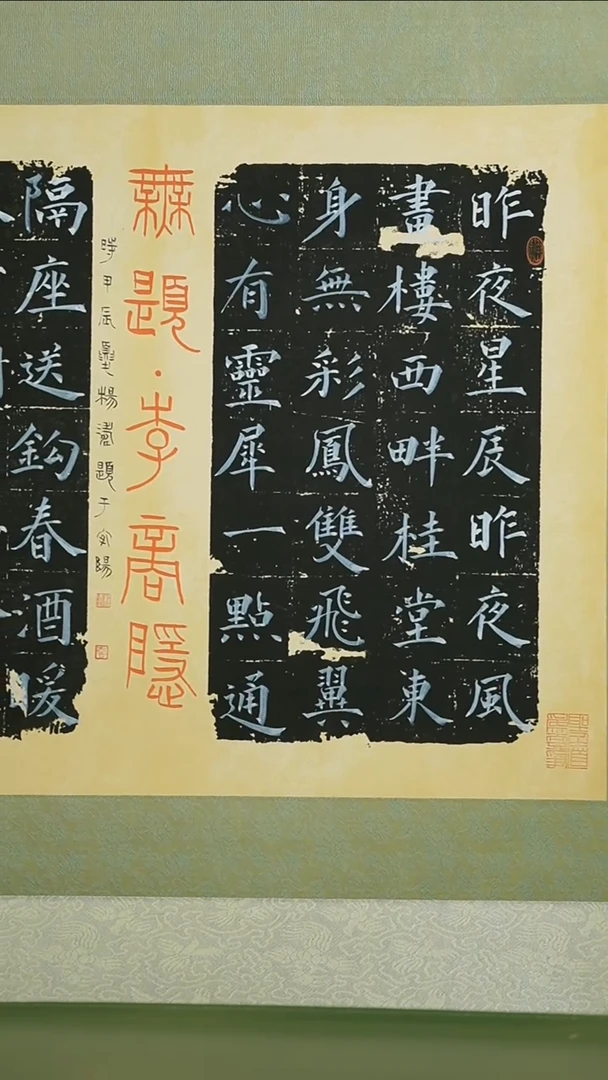 昨夜星辰昨夜風
畫樓西畔桂堂東
身無彩鳳雙飛翼
心有靈犀一點通
無題·李商隱
時甲辰楊題于陽
隔座送鈎春酒暖